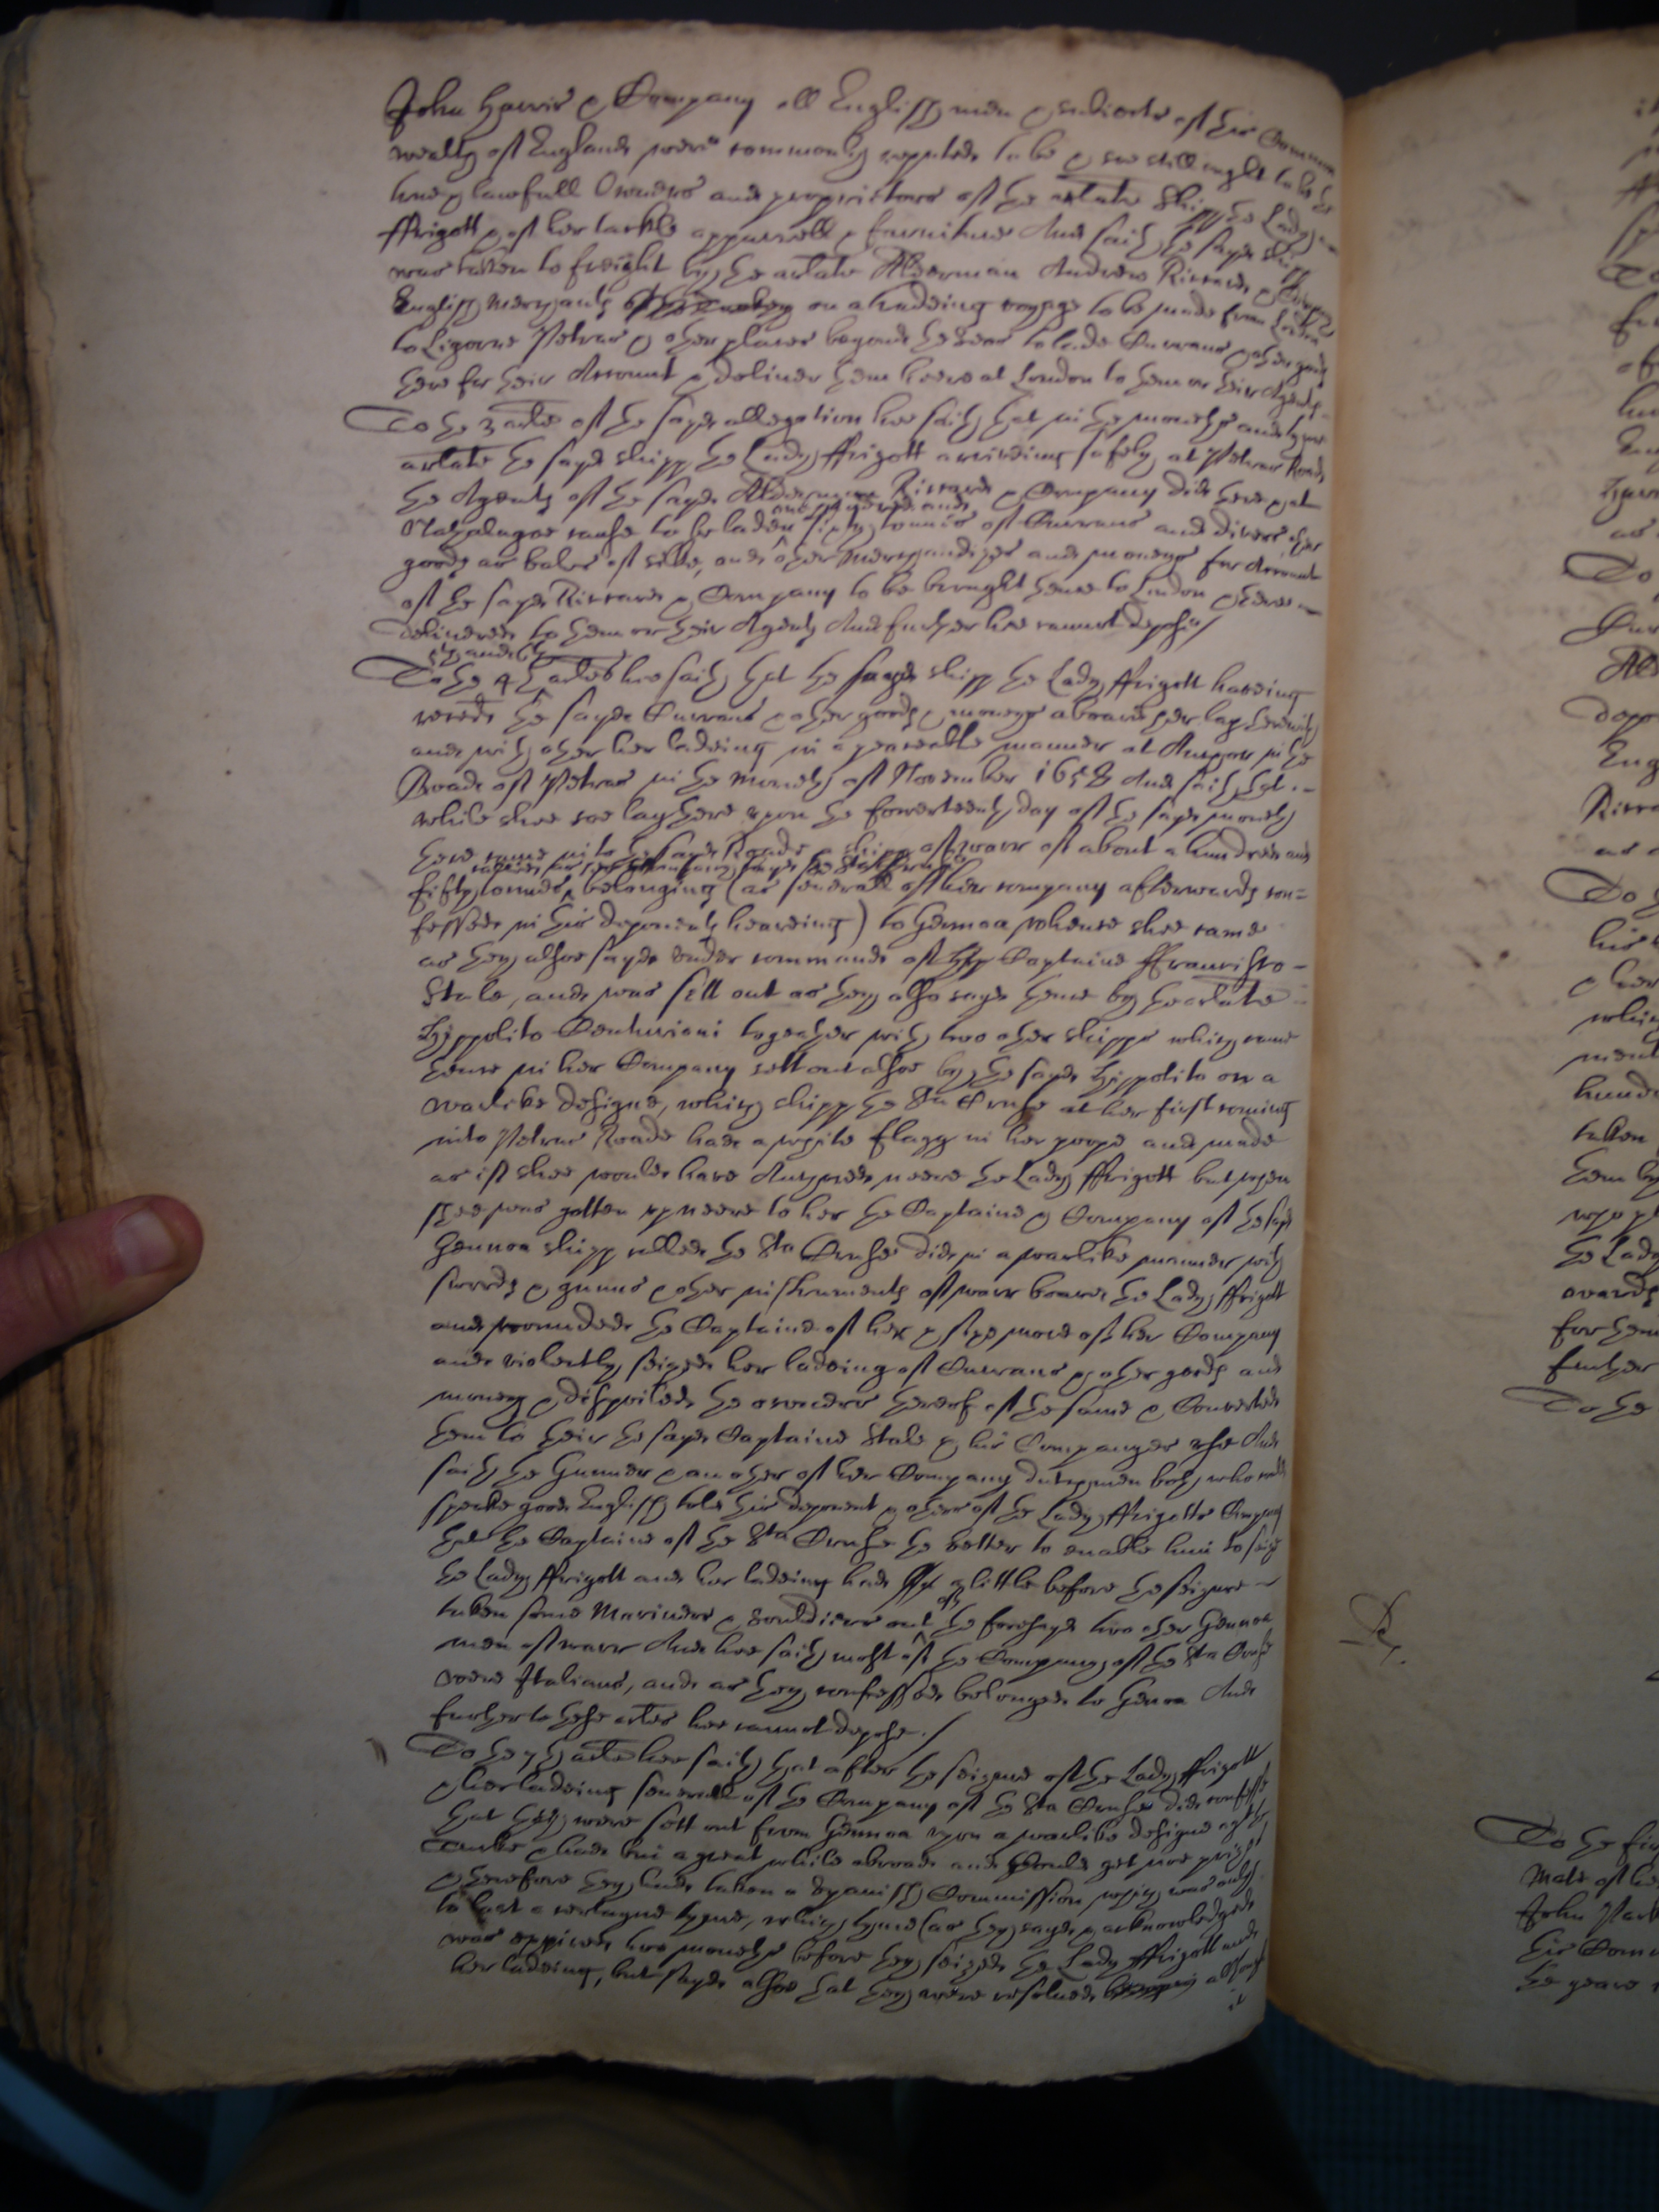 John Harris & Company all Englishmen & subiects of this Common
wealth of England were commonly reputed to be & soe still ought to be the
true & lawfull Owners and proprietors of the arlate shipp the Lady
ffrigott & of her tackle apparrell & furniture And saith the sayd shipp
was taken to freight by the arlate Alderman Andrew Riccard & Company
English Merchants on a tradeing voyage to be made from London
to Ligorne Petras & other places beyond the Seas to lade Currans & other goods
there for their Account & deliver them heere at London to them or their Agents
To the 3 arle of the sayd allegation hee saith that in the moneths and tyme
arlate the sayd shipp the Lady ffrigott arriveing safely at Petras Roade
the Agents of the sayd Alderman Riccard & Company did there & at
one hundred and
Natzalagoe cause to be laden sixty tonnes of Currans and divers other
goods as bales of silke, and other Merchandizes and moneys for Account
of the sayd Riccard & Company to be brought thence to London & there
delivered to them or their Agents And further hee cannot depose/
5th and 6th
To the 4th arles hee saith that the sayd shipp the Lady ffrigott haveing
received the sayd Currans & other goods & moneys aboard her lay therewith
and with other her ladeing in a peaceable manner at Anchor in the
Roade of Petras in the Moneth of November 1658 And saith that
while shee soe lay there upon the fowerteenth day of the sayd moneth
there came into the sayd Roade a shipp of warr of about a hundred and
called as her company sayd the Sta Cruse
fifty tonnes, belonging (as severall of her company afterwards con=
fessed in this deponents heareing) to Gennoa whence shee came
as they alsoe sayd under commaund of Captaine ffrancisco
Stale, and was sett out as they also sayd thence by the arlate
Hyppolito Centurioni togeather with two other shipps which came
thence in her Company sett out alsoe by the sayd Hyppolito on a
warlike designe, which shipp the Sta Cruse at her first coming
into Petras Roade had a white flagg in her poope and made
as if shee would have Anchored neere the Lady ffrigott but when
shee was gotten up neere to her the Captaine & Company of the sayd
Gennoa shipp called the Sta Cruse did in a warlike manner with
swords & gunns & other instruments of warr board the Lady ffrigott
and wounded the Captaine of her & sixe more of her Company
and violently seized her ladeing of Currans & other goods and
money & dispoiled the owners thereof of the same & Converted
them to their the sayd Captaine Stale & his Companyes use And
saith the Gunner & another of her Company dutchmen both who could
speake good English told this deponent & others of the Lady ffrigotts Company
that the Captaine of the Sta Cruse the better to enable him to seize
the Lady ffrigott and her ladeing had a little before the seizure
of
taken some Mariners & Souldiers out the foresayd two other Gennoa
men of warr And hee saith most of the Company of the Sta Cruse
were Italians, and as they confessed belonged to Genoa And
further to these arles hee cannot depose./
To the 7th arle hee saith that after the seizure of the Lady ffrigott
& her ladeing severall of the Company of the Sta Cruse did confesse
that they were sett out from Gennoa upon a warlike designe agt the
Turke & had bin a great while abroade and could get noe prize
& therefore they had taken a Spanish Commission which was only
to last a certayne tyme, which tyme (as they sayd & acknowledged
was expired two moneths before they seized the Lady ffrigott and
her ladeing, but sayd alsoe that they were resolved
it